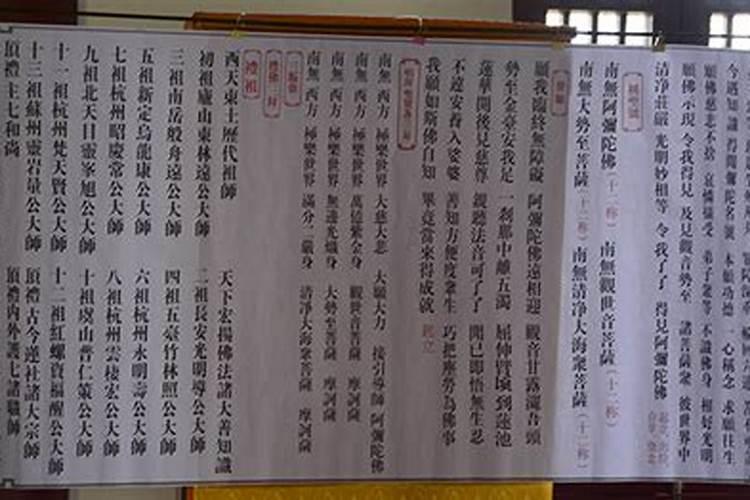 今遇知識 得聞彌陀名號 本願功德 一心稱念 求願往生
願佛慈悲不捨 哀憐攝受 弟子某等 不識佛身 相好光明
願佛示現 令我得見 及見觀音勢至 諸菩薩眾 彼世界中
清淨莊嚴 光明妙相等 令我了了 得見阿彌陀佛
稱聖號
南無阿彌陀佛(十二称) 南無觀世音菩薩(十二称)
南無大勢至菩薩(十二称) 南無清淨大海眾菩薩(十二称)
發願
願我臨終無障礙 阿彌陀佛遠相迎 觀音甘露灑吾頭
勢至金臺安我足 一剎那中離五濁 屈伸臂頃到蓮池
蓮華開後見慈尊 親聽法音可了了 聞已即悟無生忍
不違安養入娑婆 善知方便度眾生 巧把塵勞為佛事
我願如斯佛自知 畢竟當來得成就 起立
南無 西方 極樂世界 大慈大悲 大願大力 接引導師 阿彌陀佛
南無 西方 極樂世界 萬德紫金身 觀世音菩薩 摩訶薩
南無 西方 極樂世界 無邊光熾身 大勢至菩薩 摩訶薩
南無 西方 極樂世界 滿分二嚴身 清淨大海眾菩薩 摩訶薩
三皈依
禮祖
西天東土歷代祖師 天下宏揚佛法諸大善知識
初祖廬山東林遠公大師 二祖長安光明導公大師
三祖南岳般舟遠公大師 四祖五臺竹林照公大師
五祖新定烏龍康公大師 六祖杭州永明壽公大師
七祖杭州昭慶常公大師 八祖杭州雲棲宏公大師
九祖北天目靈峯旭公大師 十祖虞山普仁策公大師
十一祖杭州梵天賢公大師 十二祖紅螺資福醒公大師
十三祖蘇州靈岩量公大師 頂禮古今逆社諸大宗師
頂禮主七和尚 頂禮內外護七諸職師